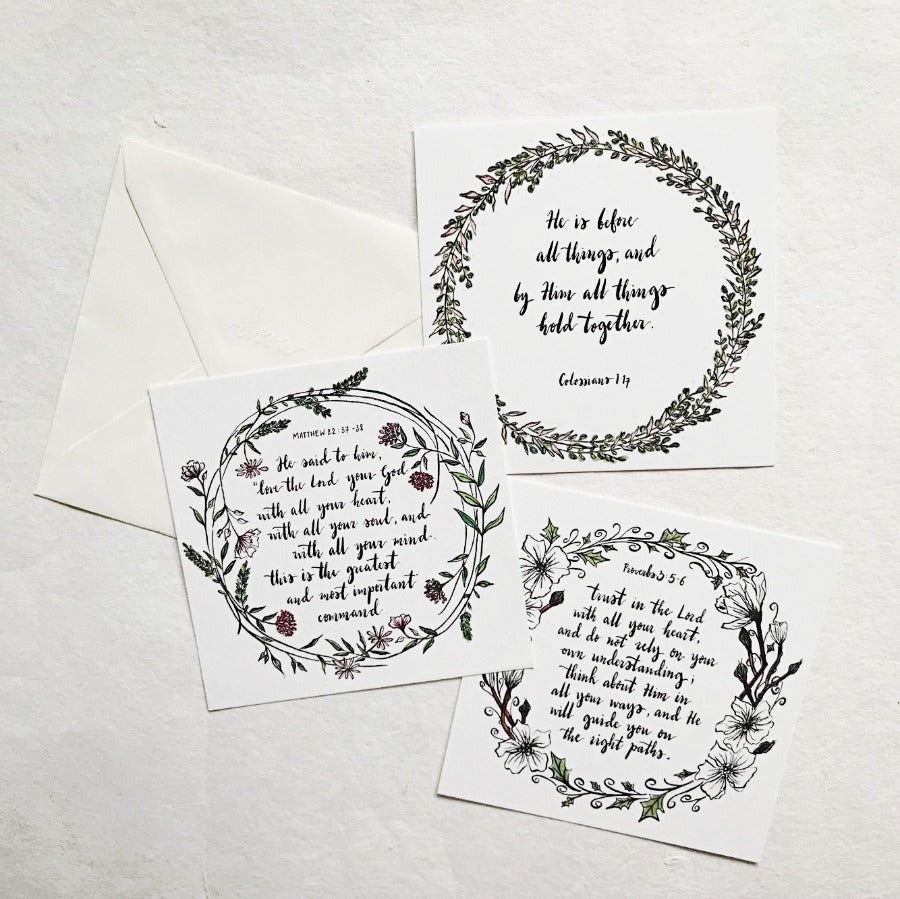 He is before
all things, and
by Him all things
hold together.
Colossians 1 17
MATTHEW 22:37-38
He said to him,
"love the Lord your God
with all your heart,
with all your soul, and
with all your mind.
this is the greatest
and most important
command.
Proverbs 3:5-6
trust in the Lord
with all your heart,
and do not rely on your
own understanding;
think about Him in
all your ways, and He
will guide you on
the right paths.